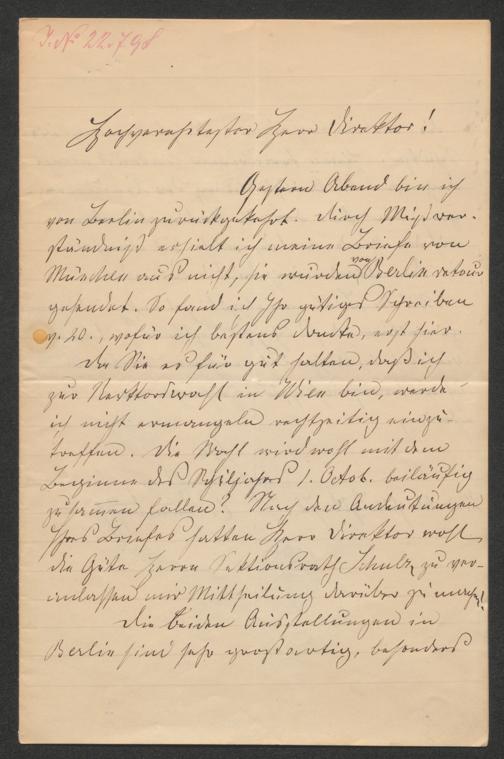 J. Nº 22.798
Hochverehrtester Herr Direktor!
Gestern Abend bin ich
von Berlin zurückgekehrt. Durch Mißver-
ständniß erhielt ich meine Briefe von
München aus nicht, sie wurden nach Berlin retour
gesendet. So fand ich Ihr gütiges Schreiben
v. 20., wofür ich bestens danke, erst hier.
Da Sie es für gut halten, daß ich
zur Rectorswahl in Wien bin, werde
ich nicht ermangeln rechtzeitig einzu-
treffen. Die Wahl wird wohl mit dem
Beginne des Schuljahres 1. Octob. beiläufig
zusammen fallen? Nach den Andeutungen
Ihres Briefes hatten Herr Direktor wohl
die Güte Herrn Sektionsrath Schulz, zu ver-
anlassen mir Mittheilung darüber zu machen!
Die beiden Ausstellungen in
Berlin sind sehr großartig, besonders